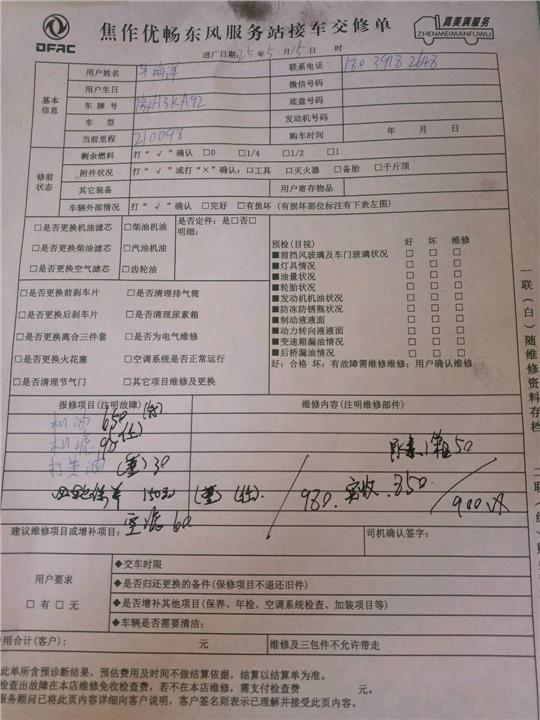 DFAC
焦作优畅东风服务站接车交修单
真美满服务
ZHENMEIMANFUWU
进厂日期 25 年 5 月 15 日 时
基本信息
用户姓名
联系电话 180 3918 2648
用户生日
微信号码
车牌号 豫H3KA92
底盘号码
车型
发动机号码
当前里程 210098
购车时间 年 月 日
修前状态
剩余燃料 打“√”确认 □0 □1/4 □1/2 □1
附件状况 打“√”或打“×”确认:□工具 □灭火器 □备胎 □千斤顶
其它装备
用户寄存物品
车辆外部情况 打“√”确认 □完好 □有损坏(有损坏部位标注有下表左图)
□是否更换机油滤芯 □柴油机油
□是否更换柴油滤芯 □汽油机油
□是否更换空气滤芯 □齿轮油
是否定件:是□否□
明细:
□是否更换前刹车片 □是否清理排气筒
□是否更换后刹车片 □是否清理尿素箱
□是否更换离合三件套 □是否为电气维修
□是否更换火花塞 □空调系统是否正常运行
□是否清理节气门 □其它项目维修及更换
预检(目视) 好 坏 维修
■前挡风玻璃及车门玻璃状况 □ □ □
■灯具情况 □ □ □
■油量状况 □ □ □
■轮胎状况 □ □ □
■发动机机油状况 □ □ □
■防冻防锈瓶状况 □ □ □
■制动液液面 □ □ □
■动力转向液液面 □ □ □
■变速箱漏油情况 □ □ □
■后桥漏油情况 □ □ □
好:合格 坏:有故障需维修维修:用户确认维修
报修项目(注明故障)
维修内容(注明维修部件)
机油 650
机滤 90
打黄油 30
50
150元
930. 实收 350.
900
空滤 60
建议维修项目或增补项目:
司机确认签字:
用户要求
□有 □无
◆交车时限
◆是否归还更换的备件(保修项目不退还旧件)
◆是否增补其他项目(保养、年检、空调系统检查、加装项目等)
◆车辆是否需要清洁:
用合计(客户): 元
维修及三包件不允许带走
此单所含预诊断结果,预估费用及时间不做结算依据,结算以结算单为准。
检查出故障在本店维修免收检查费,若不在本店维修,需支付检查费 元。
服务顾问已将此页内容详细向客户说明,客户签名则表示已理解并接受此页内容。
一联(白)随维修资料存档
二联